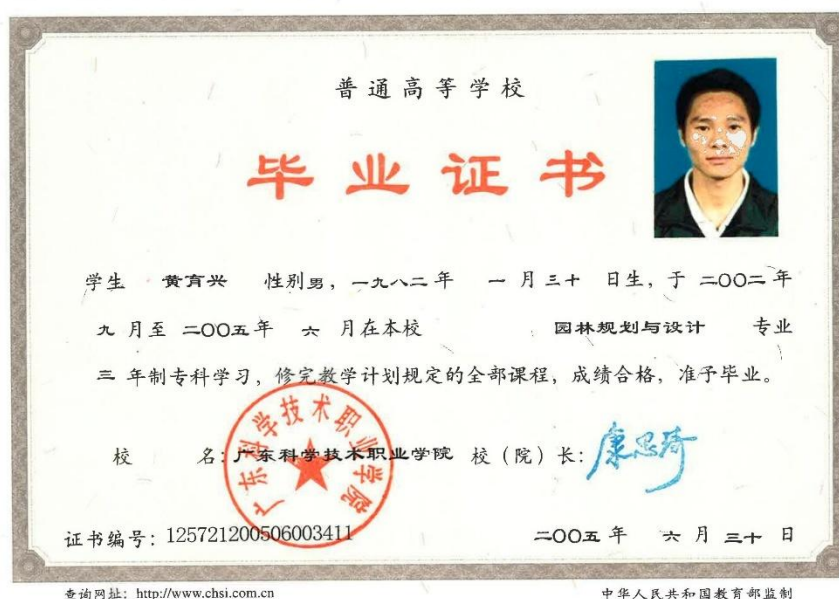 普通高等学校
毕业证书
学生 黄育兴 性别男，一九八二年 一月三十 日生，于二〇〇二年
九月至二〇〇五年 六 月在本校 园林规划与设计 专业
三 年制专科学习，修完教学计划规定的全部课程，成绩合格，准予毕业。
校 名：广东科学技术职业学院 校（院）长：康思琦
广东科学技术职业学院
证书编号：125721200506003411 二〇〇五年 六月三十日
查询网址：http://www.chsi.com.cn 中华人民共和国教育部监制